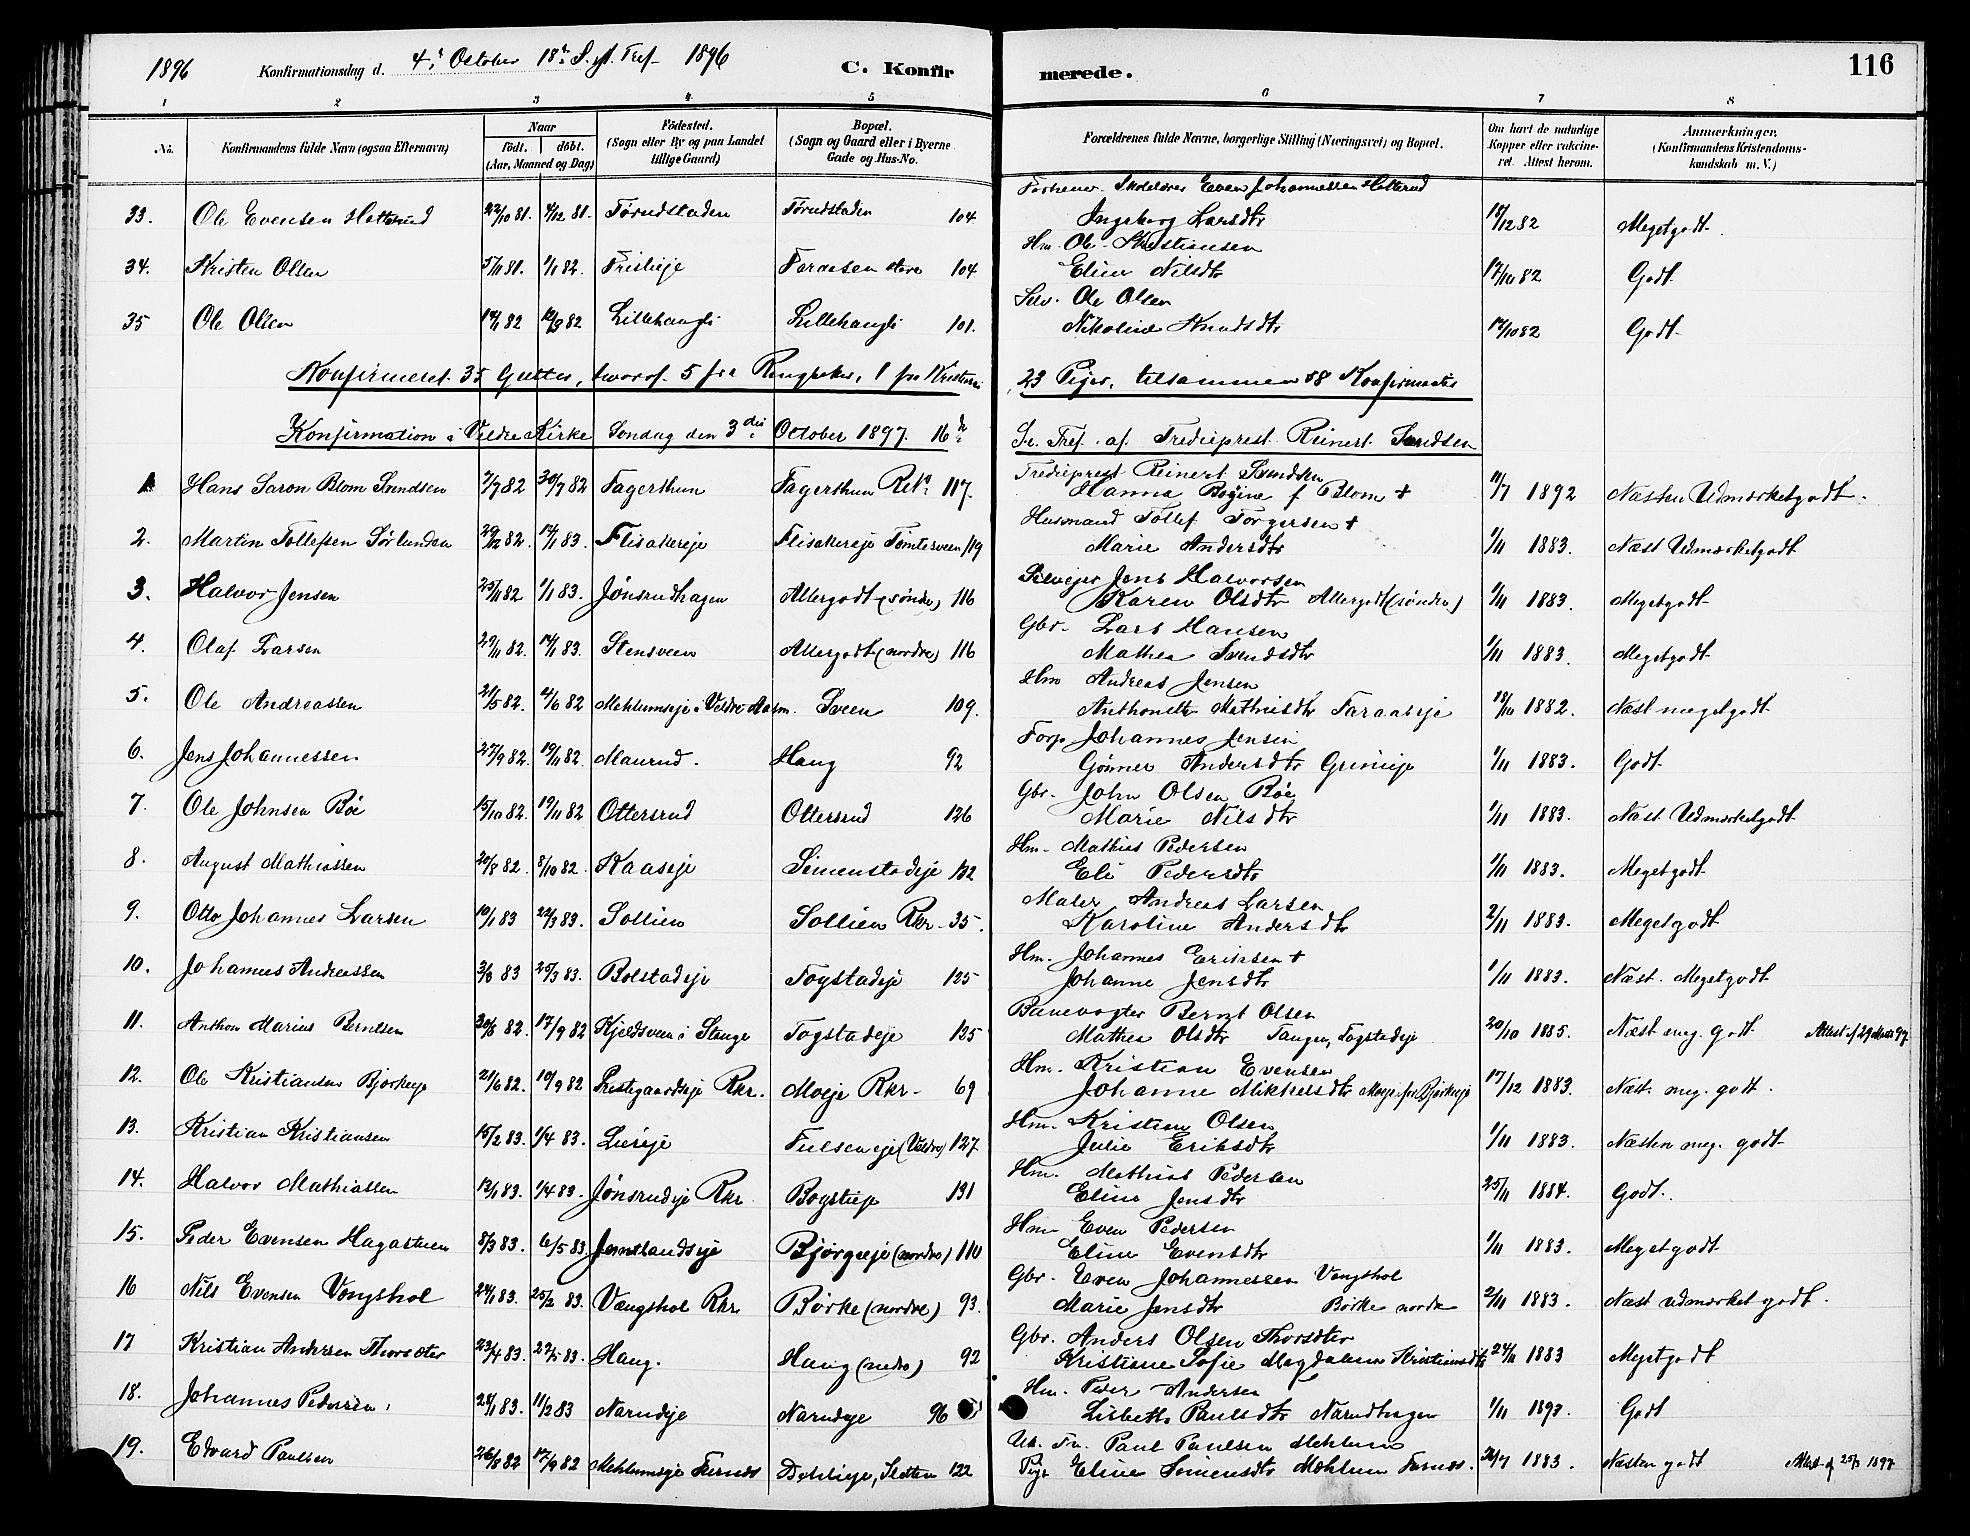 1896 Konfirmationsdag d. 4de October 18de S. e. Tref. 1896 C. Konfir merede. 116
1 2 3 4 5 6 7 8
No. Konfirmandens fulde Navn (ogsaa Efternavn) Naar födt. döbt. (Aar, Maaned og Dag) Födested. (Sogn eller By og paa Landet tillige Gaard) Bopæl. (Sogn og Gaard eller i Byerne Gade og Hus-No. Forældrenes fulde Navne, borgerlige Stilling (Næringsvei) og Bopæl. Om havt de naturlige Kopper eller vaccineret. Attest herom. Anmærkninger. (Konfirmandens Kristendomskundskab m. V.)
33. Ole Evensen 22/10 81. 4/12 81. Tørudstaden Tørudstaden 104 Even Johannessen
Ingeborg Larsdtr 12/82 Megetgodt.
34. Kristen Olsen 5/11 81. 1/1 82. 104 Hm. Ole Kristiansen
Eline Nilsdtr 17/10 82 Godt
35 Ole Olsen 82 82 Lillehaugli Lillehaugli 101. Selv. Ole Olsen
Nikoline Knudsdtr 17/10 82 Godt
Konfirmeret 35 Gutter, hvoraf 5 fra Ringsaker, 1 fra 23 Piger, tilsammen 58 Konfirmanter
Konfirmation i Veldre Kirke Søndag den 3die October 1897. 16de S. e. Tref. af Tredieprest Reinert Svendsen
1 Hans Saron Blom Svendsen 7/7 82 30/7 82 Fagerthun Fagerthun Rkr 117. Tredieprest Reinert Svendsen
Hanna Regine f Blom + 11/7 1892 Næsten Udmærketgodt.
2. Martin Tollefsen Sørlunden 29/12 82. 14/1 83. Flisakereje Flisakereje Tomtesveen 119 Husmand Tollef Torgersen +
Marie Andersdtr 1/11 1883. Næst Udmærketgodt
3. Halvor Jensen 25/11 82 1/1 83. Jønsrudhagen Allergodt (søndre) 116 Selvejer Jens Halvorsen
Karen Olsdtr Allergodt (søndre) 1/11 1883. Megetgodt
4. Olaf Larsen 29/11 82. 14/1 83. Stensveen Allergodt (nordre) 116 Gbr. Lars Hansen
Mathea Svendsdtr 1/11 1883. Megetgodt
5. Ole Andreassen 21/5 82. 4/6 82 Mehlumseje i Veldre Sveen 109. Hm Andreas Jensen
Anthonette Mathisdtr Faraaseje 18/10 1882. Næst megetgodt
6. Jens Johannessen 27/9 82. 19/11 82. Maurud. Haug 92 Forp Johannes Jensen
Gønner Andersdtr 1/11 1883. Godt
7. Ole Johnsen Böe 15/10 82. 19/11 82 Ottersrud Ottersrud 126 Gbr. John Olsen Böe
Marie Nilsdtr 1/11 1883. Næst Udmærketgodt
8. August Mathiassen 20/8 82. 8/10 82. Kaaseje Simenstadeje 132 Hm. Mathias Pedersen
Eli Pedersdtr 1/11 1883. Megetgodt
9. Otto Johannes Larsen 10/1 83 22/3 83. Sollien Sollien Rkr. 35. Maler Andreas Larsen
Karoline Andersdtr 2/11 1883. Megetgodt
10. Johannes Andreassen 3/3 83 25/3 83. Bolstadeje Togstadeje 125 Hm. Johannes Eriksen +
Johanne Jensdtr 1/11 1883. Næst. Megetgodt
11. Anthon Marius Berntsen 30/8 82. 17/9 82 Kjeldsveen i Stange Togstadeje 125 Banevogter Bernt Olsen
Mathea Olsdtr Tangen, Togstadeje 20/10 1885. Næst meg. godt
12. Ole Kristiansen Bjørkeje 21/6 82. 10/9 82 Prestgaardseje Rkr. Moeje Rkr. 69 Hm. Kristian Evensen
Johanne Mikkelsdtr Moeje fra Bjørkeje 17/12 1883. Næst. meg. godt.
13. Kristian Kristiansen 15/2 83. 1/4 83. Lieeje (Veldre) 127 Hm. Kristian Olsen
Julie Eriksdtr 1/11 1883. Næsten meg. godt
14. Halvor Mathiassen 12/1 83. 1/4 83. Jønsrudeje Rkr. 131 Hm. Mathias Pedersen
Eline Jensdtr 25/11 1884. Godt.
15. Peder Evensen Hagastuen 8/3 83. 6/5 83 Jemtlandseje Bjørgeeje (nordre) 110 Hm Even Pedersen
Eline Evensdtr 1/11 1883. Megetgodt
16 Nils Evensen Vangshol 24/1 83. 25/2 83. Vangshol Rkr Børke (nordre) 93. Gbr. Even Johannessen Vangshol
Marie Jensdtr Børke nordre 2/11 1883. Næst udmærket godt.
17 Kristian Andersen Thorsdter 23/4 83. 27/5 83. Haug. Haug (nedre) 92 Gbr. Anders Olsen Thorsdter
Kristiane Sofie Magdalena Kristiansdtr 24/11 1883 Megetgodt
18. Johannes Pedersen 28/1 83. 11/2 83 Narudeje Narudeje 96 Hm. Peder Andersen
Lisbeth Paulsdtr Narudhagen 1/11 1893. Godt
19. Edvard Paulsen 26/8 82 17/9 82 Mehlumseje Furnes Dehlieje, Sletten 122 Paul Paulsen Mehlum
Pige Eline Simensdtr Mehlum Furnes. 1883. Næsten godt